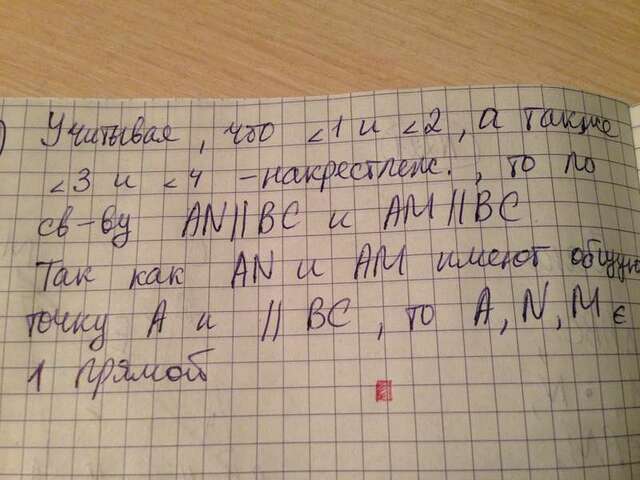 ) Учитывая, что <1 и <2, а также
<3 и <4 - накрестлеж., то по
св-ву AN||BC и AM||BC
Так как AN и AM имеют общую
точку A и || BC, то A, N, M ∈
1 прямой